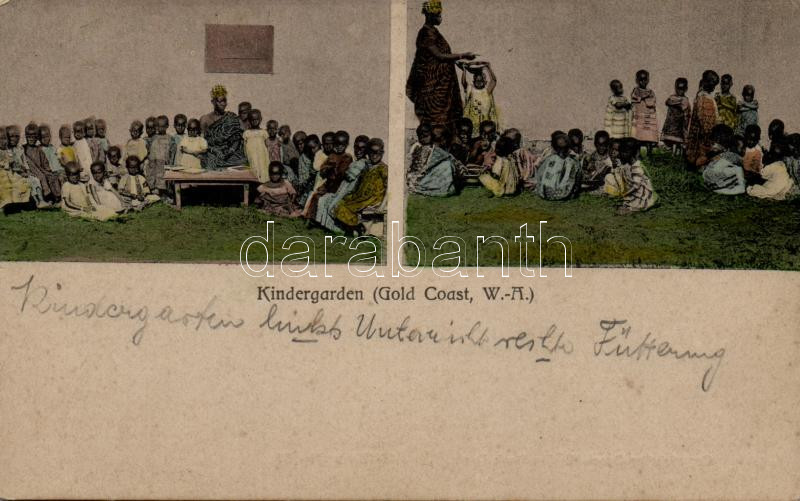 darabanth
Kindergarden (Gold Coast, W.-A.)
Kindergarten links Unterricht rechts Fütterung